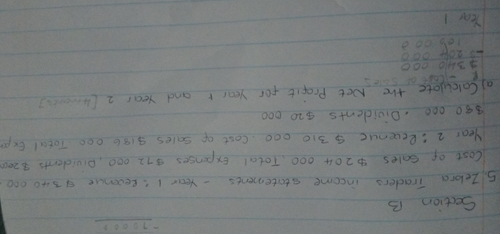 Section B
5. Zebra Traders income statements - Year 1: Revenue $340 000
Cost of Sales $204 000, Total Expenses $72 000, Dividents
Year 2: Revenue $310 000 Cost of Sales $186 000 Total Exp
$80 000. Dividents $20 000
a) Calculate the Net Profit for Year 1 and Year 2
$340 000
- 204 000
Year 1